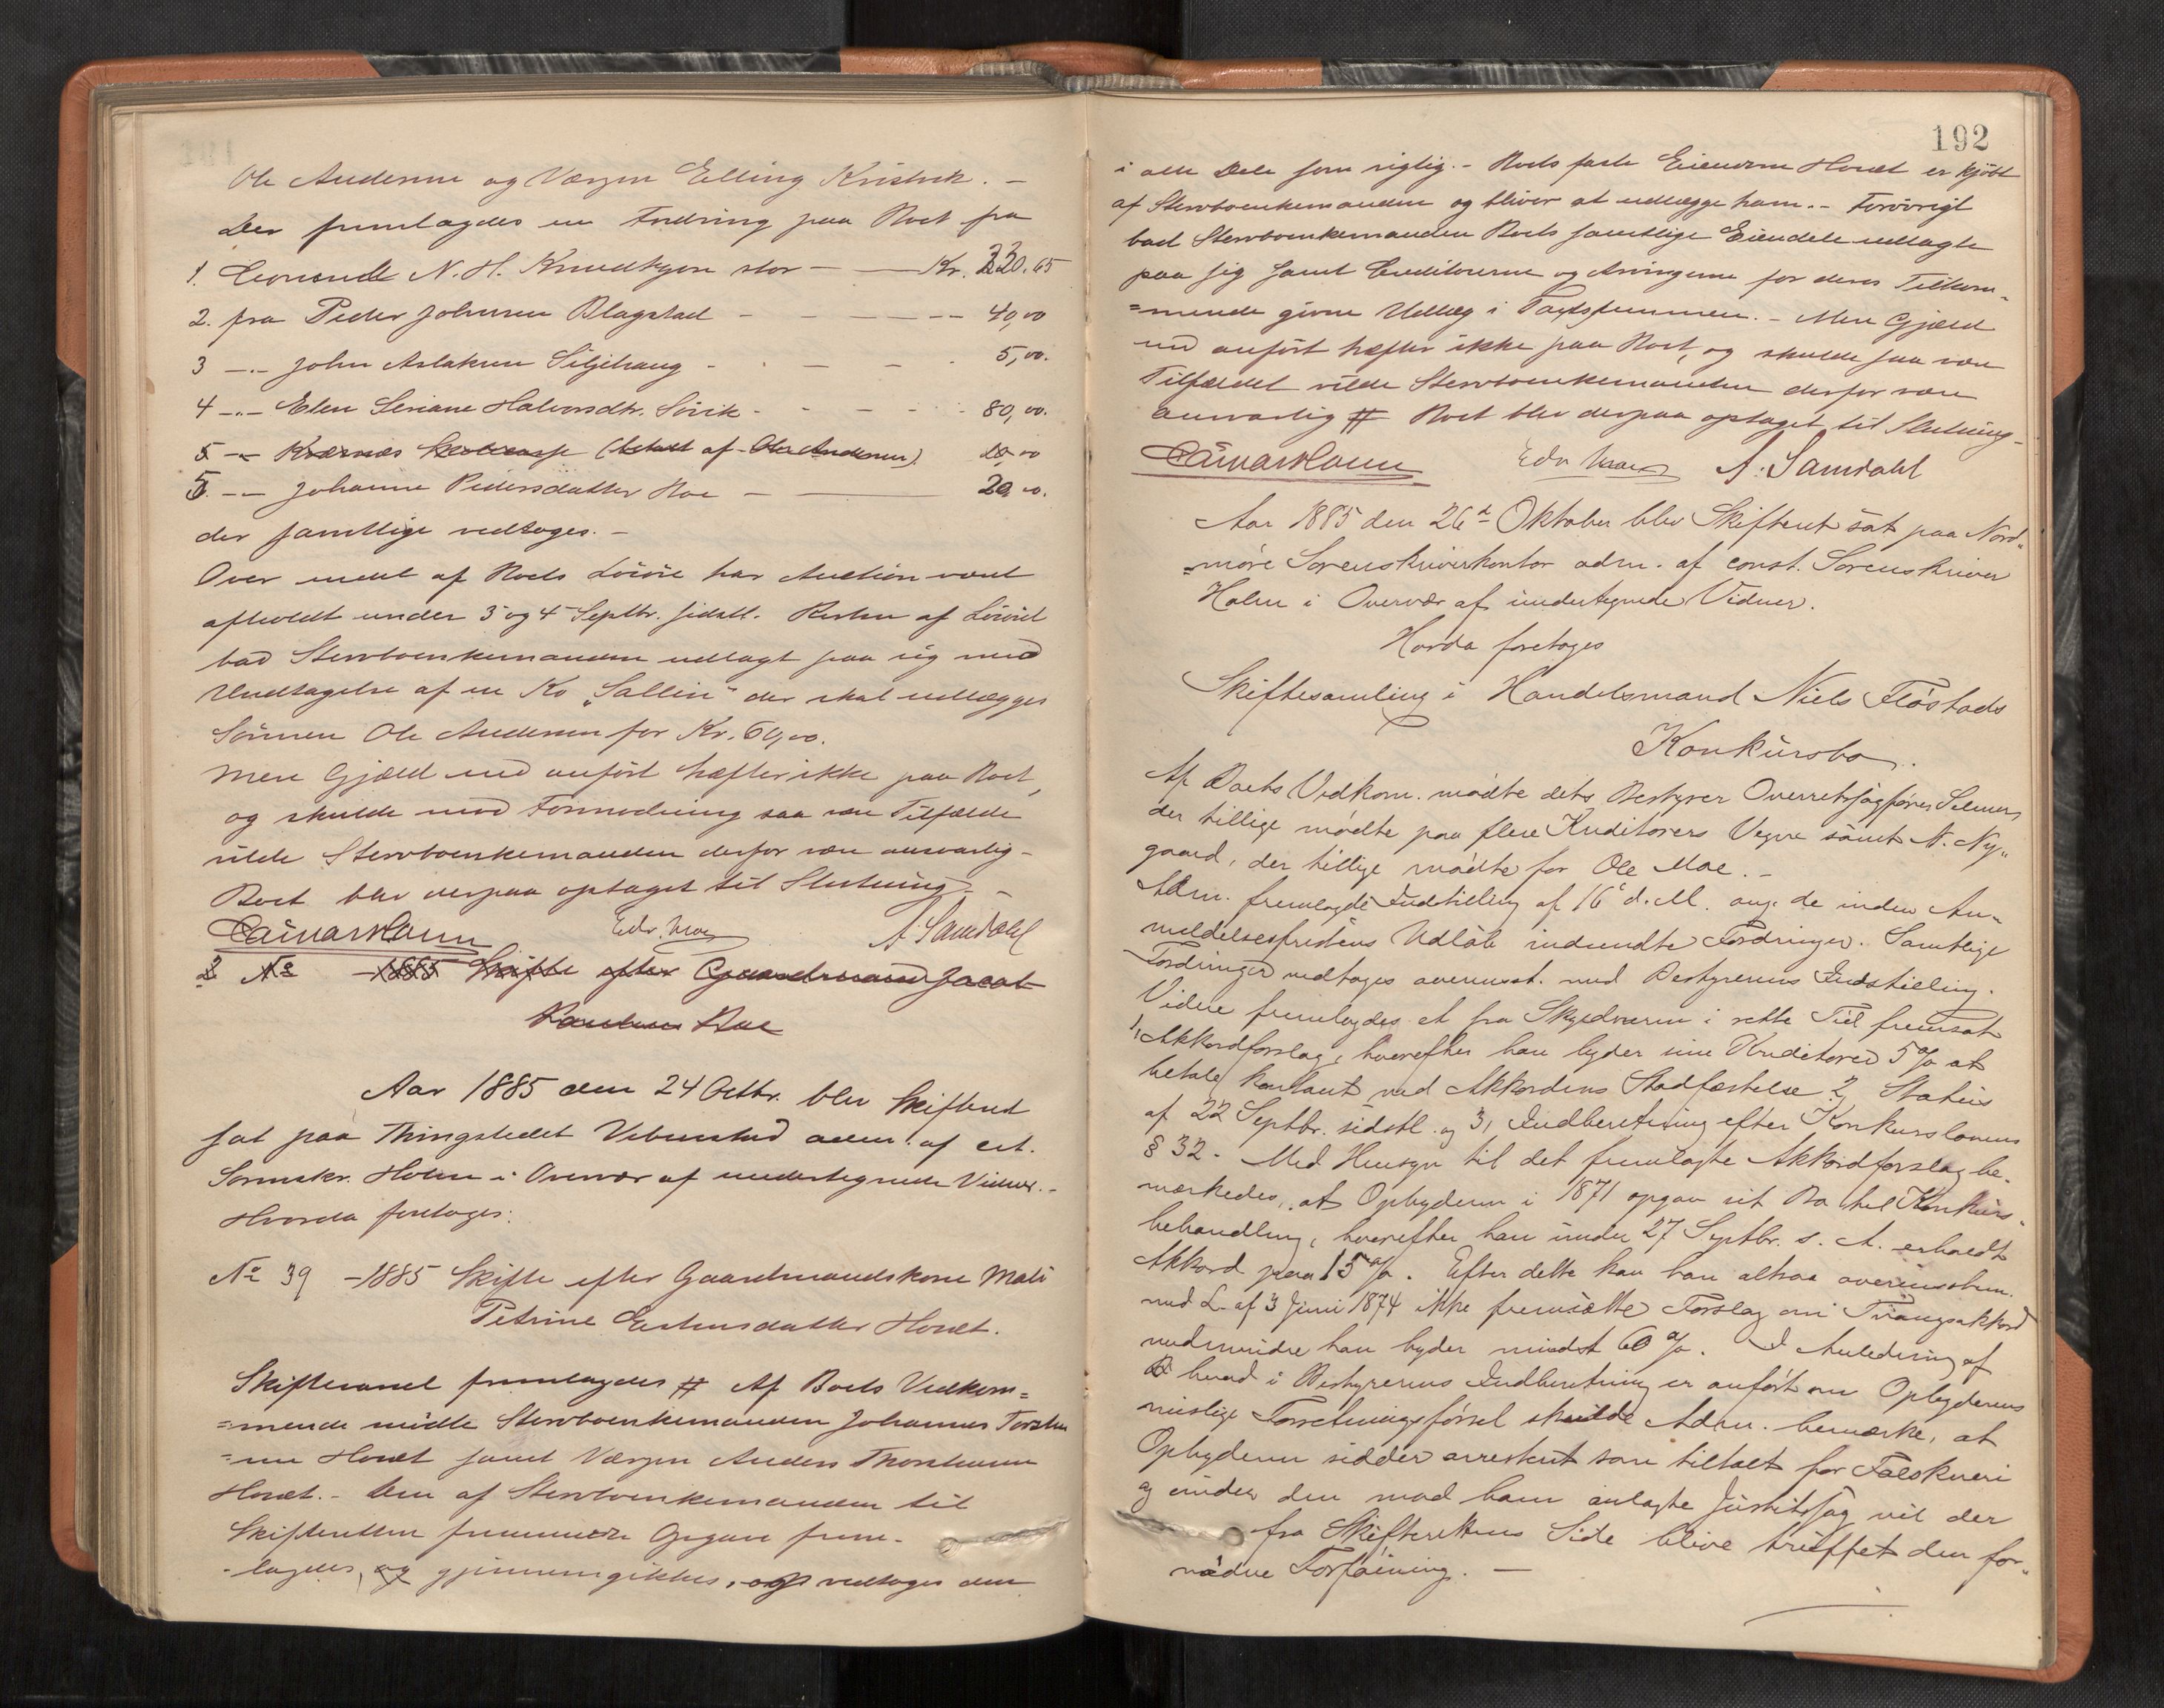 192
Ole Andersen og Værgen Elling Kristvik. –
Der fremlagdes en Fordring paa Boet fra
1. Leonard N. H. Knudtzon stor – – Kr. 220.65
2. fra Peder Johnsen Blagstad – – – – – 40,00
3 –„– John Aslaksen Siljehaug – – – – 5,00.
4 –„– Elen Seriane Halvorsdtr. Sövik – – – – 80,00.
5 –„– Kværnæs (betalt af Ole Andersen) 20,00
5. –„– Johanne Pedersdatter Boe – – 20,00.
der samtlige vedtoges. –
Over endel af Boets Lösöre har Auction været
afholdt under 3 og 4 Septbr. sidstl. Resten af Lösöret
bad Stervboenkemanden udlagt paa sig med
Undtagelse af en Ko „Sallin" der skal udlægges
Sönnen Ole Andersen for Kr. 60,00.
Mere Gjæld end anfört hæfter ikke paa Boet,
og skulde mod Formodning saa være Tilfælde
vilde Stervboenkemanden derfor være ansvarlig –
Boet blev derpaa optaget til Slutning. –
Edv. Moe A. Samdahl
No 1885 Skifte efter Gaardmand Jacob
Boe
Aar 1885 den 24 Octbr. blev Skifteret
sat paa Thingstedet Vebenstad adm. af cst.
Sorenskr. Holm i Overvær af undertegnede Vidner. –
Hvorda foretoges:
No 39 – 1885 Skifte efter Gaardmandskone Mali
Petrine Estensdatter Honæt.
Skifteranel fremlagdes # Af Boets Vedkom=
=mende mödte Stervboenkemanden Johannes Torsten
=sen Honæt samt Værgen Anders Thorstensen
Honæt. – Den af Stervboenkemanden til
Skifteretten fremmede Opgave frem-
-lagdes, og gjennemgikkes, og vedtoges den
i alle Dele som rigtig. – Boets faste Eiendom Honæt er kjöbt
af Stervboenkemanden og bliver at udlægge ham. – Forövrigt
bad Stervboenkemanden Boets samtlige Eiendele udlagte
paa sig samt Creditorerne og Arvingerne for deres Tilkom-
=mende givne Udlæg i Taxtsummen. – Mere Gjæld
end anfört hæfter ikke paa Boet, og skulde saa være
Tilfældet vilde Stervboenkemanden derfor være
ansvarlig # Boet blev derpaa optaget til Slutning –
Edv Moe A. Samdahl
Aar 1885 den 26de Oktober blev Skifteret sat paa Nord„
„möre Sorenskriverkontor adm. af const. Sorenskriver
Holm i Overvær af undertegnede Vidner.
Hvorda foretoges
Skiftesamling i Handelsmand Niels Flöstads
Konkursbo.
Af Boets Vedkom. mödte dets Bestyrer Overretssagförer Selmer,
der tillige mödte paa flere Kreditorers Vegne samt N. Ny„
gaard, der tillige mödte for Ole Moe. –
Adm. fremlagde Indstilling af 16de d. M. ang. de inden An„
meldelsesfristens Udlöb indsendte Fordringer. Samtlige
Fordringer vedtoges overensst. med Bestyrerens Indstilling.
Videre fremlagdes et fra Skyldneren i rette Tid fremsat
1, Akkordforslag, hvorefter han byder sine Kreditorer 5 % at
betale kontant ved Akkordens Stadfæstelse 2, Status
af 22 Septbr. sidstl. og 3, Indberetning efter Konkurslovens
§ 32. – Med Hensyn til det fremlagte Akkordforslag be„
mærkedes, at Opbyderen i 1871 opgav sit Bo til Konkurs„
behandling, hvorefter han under 27 Septbr. s. A. erholdt
Akkord paa 15 %. Efter dette kan han altsaa overensstem.
med L. af 3 Juni 1874 ikke fremsætte Forslag om Tvangsakkord
medmindre han byder mindst 60 %. I Anledning af
hvad i Bestyrerens Indberetning er anfört om Opbyderens
mislige Forretningsförsel skulde Adm. bemærke, at
Opbyderen sidder arresteret som tiltalt for Falskneri
og under den mod ham anlagte Justitssag vil der
fra Skifterettens Side blive truffet den for„
nödne Forföining. –